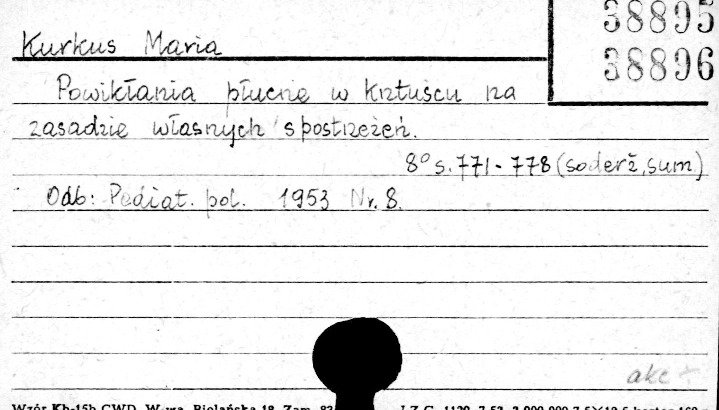 38895
38896
Kurkus Maria
Powikłania płucne w krztuścu na
zasadzie własnych spostrzeżeń.
8° s. 771-778 (soderž, sum)
Odb: Pediat. pol. 1953 Nr. 8.
akc +
Wzór Kb-15b CWD, W-wa, Bielańska 18. Zam.